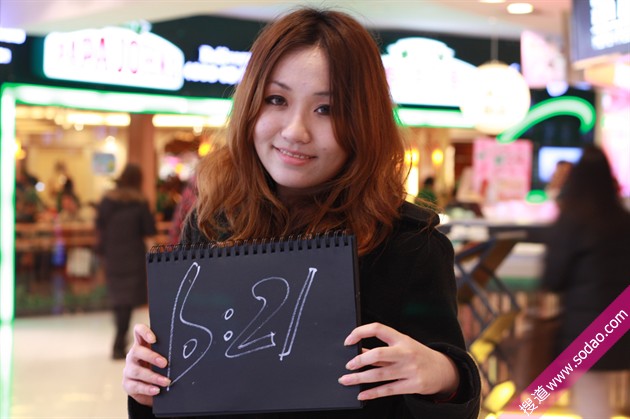 PAPA JOHN'S
6:21
搜道 www.sodao.com